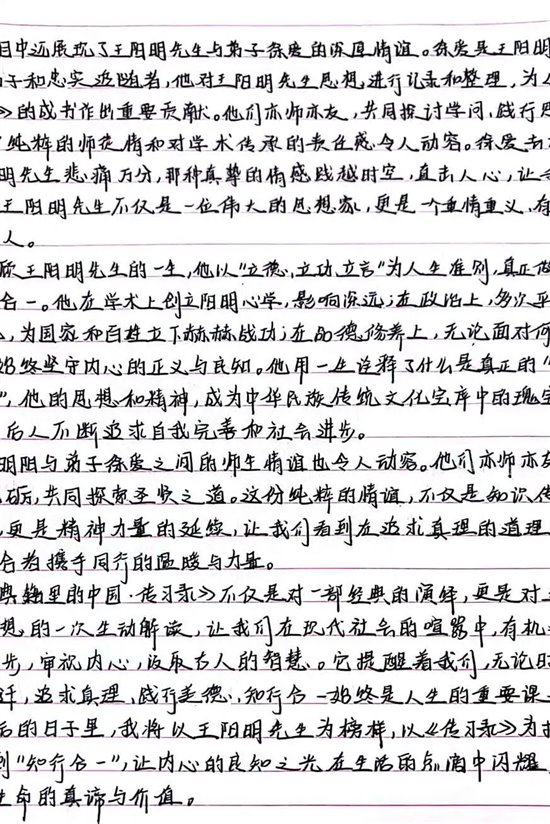 目中还展现了王阳明先生与弟子徐爱的深厚情谊。徐爱是王阳明
子和忠实追随者,他对王阳明先生思想进行记录和整理,为《
》的成书作出重要贡献。他们亦师亦友,共同探讨学问、践行思
纯粹的师徒情和对学术传承的责任感令人动容。徐爱去
明先生悲痛万分,那种真挚的情感跨越时空,直击人心,让
王阳明先生不仅是一位伟大的思想家,更是一个重情重义、有
人。
顾王阳明先生的一生,他以“立德、立功、立言”为人生准则,真正做
合一。他在学术上创立阳明心学,影响深远;在政治上,多次平
,为国家和百姓立下赫赫战功;在品德修养上,无论面对何
始终坚守内心的正义与良知。他用一生诠释了什么是真正的“
”,他的思想和精神,成为中华民族传统文化宝库中的瑰宝
后人不断追求自我完善和社会进步。
明阳与弟子徐爱之间的师生情谊也令人动容。他们亦师亦友
砺,共同探索圣贤之道。这份纯粹的情谊,不仅是知识传
更是精神力量的延续,让我们看到在追求真理的道理
合者携手同行的温暖与力量。
典籍里的中国·传习录》不仅是对一部经典的演绎,更是对
想的一次生动解读,让我们在现代社会的喧嚣中,有机
步,审视内心,汲取古人的智慧。它提醒着我们,无论时
迁,追求真理、践行美德、知行合一始终是人生的重要课
后的日子里,我将以王阳明先生为榜样,以《传习录》为指
到“知行合一”,让内心的良知之光在生活的点滴中闪耀
生命的真谛与价值。